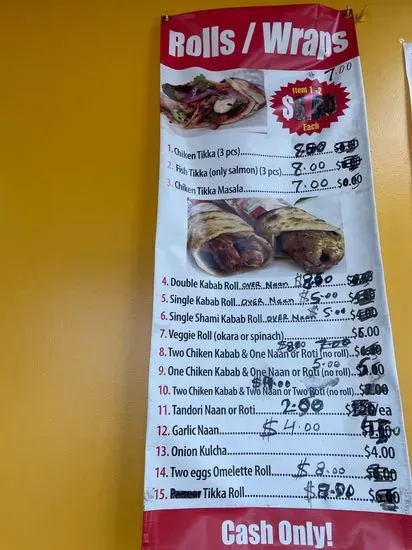 Rolls / Wraps
$ 7.00
Item 1 - 2
Each
1. Chiken Tikka (3 pcs)
2. Fish Tikka (only salmon) (3 pcs) 8.00
3. Chiken Tikka Masala 7.00
4. Double Kabab Roll OVER Naan
5. Single Kabab Roll OVER Naan $5.00
6. Single Shami Kabab Roll OVER Naan $5.00
7. Veggie Roll (okara or spinach) $6.00
8. Two Chiken Kabab & One Naan or Roti (no roll) 7.00
9. One Chiken Kabab & One Naan or Roti (no roll) 5.00
10. Two Chiken Kabab & Two Naan or Two Roti (no roll) $9.00
11. Tandori Naan or Roti 2.00 /ea
12. Garlic Naan $4.00
13. Onion Kulcha $4.00
14. Two eggs Omelette Roll $8.00
15. Paneer Tikka Roll $8.00
Cash Only!